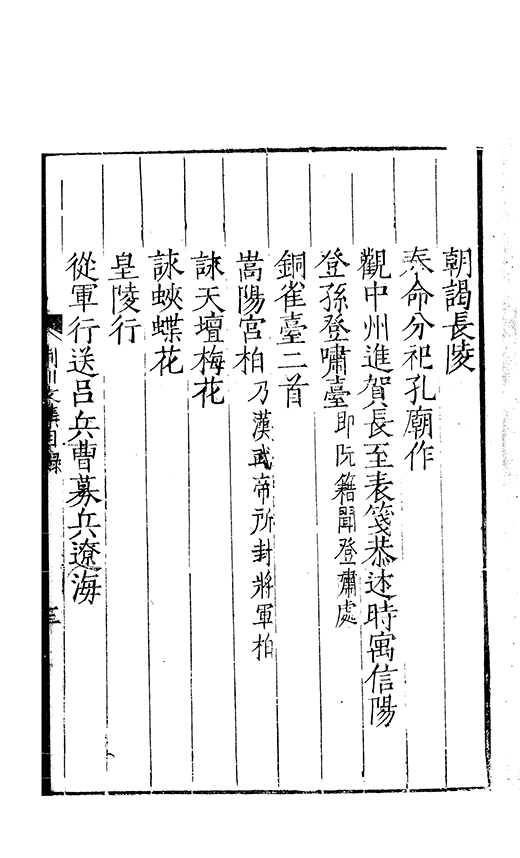 朝謁長陵
奉命分祀孔廟作
觀中州進賀長至表箋恭述時寓信陽
登孫登嘯臺即阮籍聞登肅處
銅雀臺二首
嵩陽宮柏乃漢武帝所封將軍柏
詠天壇梅花
詠蛺蝶花
皇陵行
從軍行送呂兵曹募兵遼海
川文集目錄
三